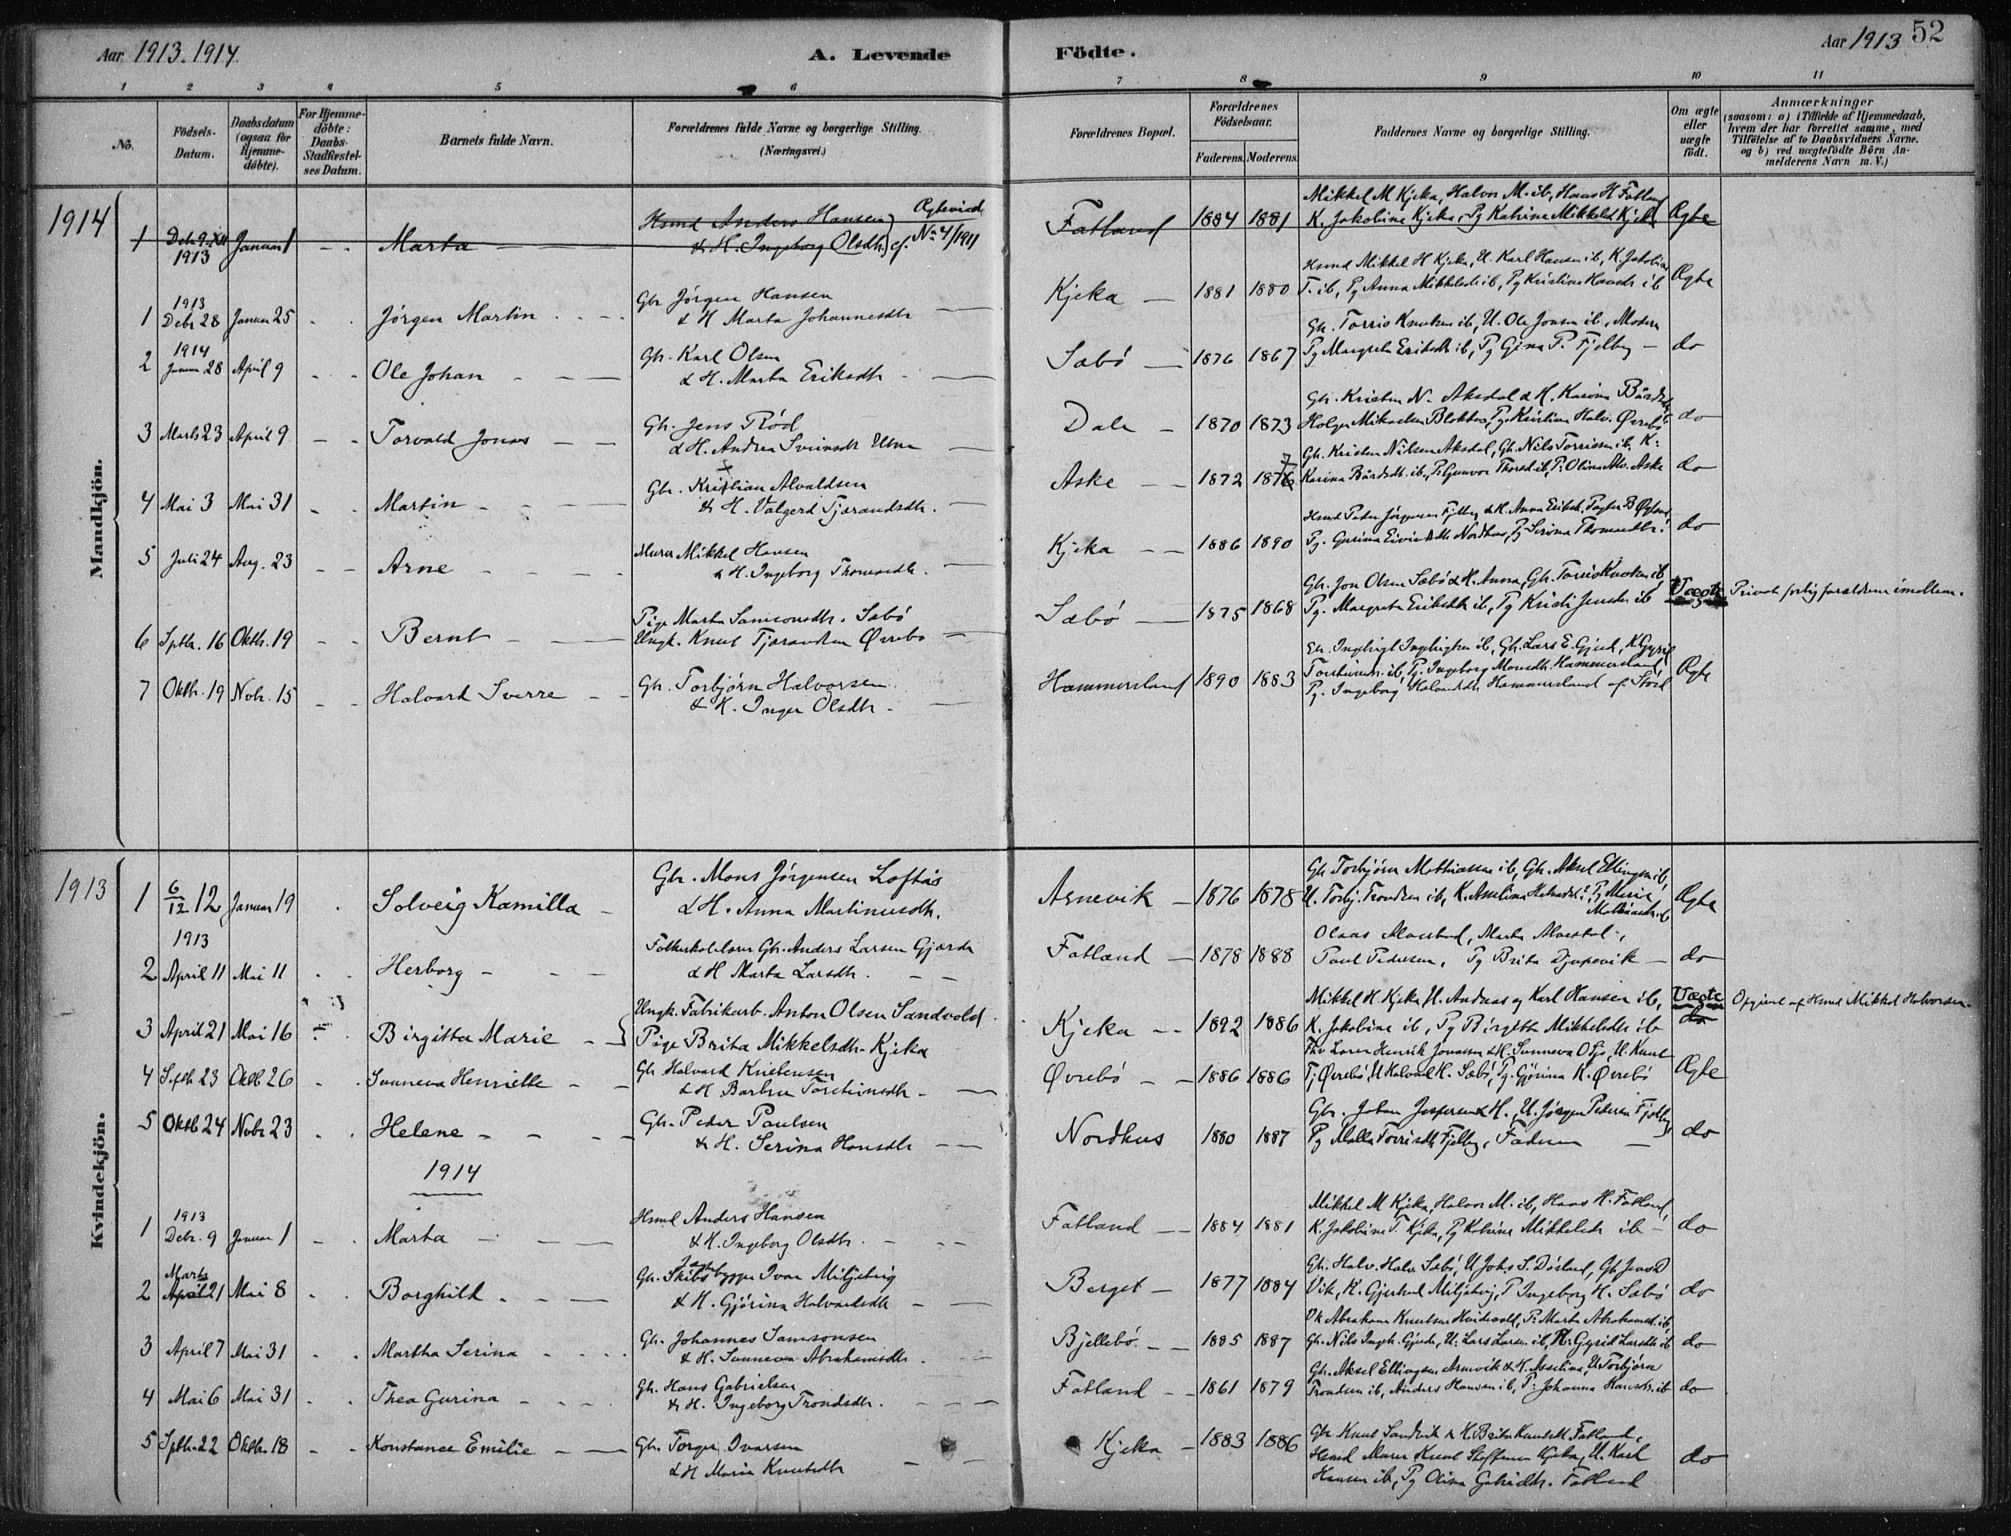 Aar 1913. 1914. A. Levende Födte. Aar 1913 52
1 2 3 4 5 6 7 8 9 10 11
No. Födsels-Datum. Daabsdatum (ogsaa for Hjemmedöbte). For Hjemmedöbte: Daabs-Stadfæstelses Datum. Barnets fulde Navn. Forældrenes fulde Navne og borgerlige Stilling. (Næringsvei.) Forældrenes Bopæl. Forældrenes Födselsaar. Faderens. Moderens. Faddernes Navne og borgerlige Stilling. Om ægte eller uægte födt. Anmærkninger (saasom: a) i Tilfælde af Hjemmedaab, hvem der har forrettet samme, med Tilföielse af to Daabsvidners Navne, og b) ved uægtefödte Börn Anmelderens Navn m. V.)
Mandkjön.
1914
1 Debr 9 1913 Januar 1 Marta Hsmd Anders Hansen & H. Ingeborg Olsdtr. cf. No 4/1911 Fatland 1884 1881 Mikkel M Kjeka, Halvor M. ib, Hans H Fatland K. Jakobine Kjeka, Pg Katrine Mikkelsd Kjeka Ægte
1 1913 Debr 28 Januar 25 Jörgen Martin Gbr Jörgen Hansen & H Marta Johannesdtr Kjeka 1881 1880 Hsmd Mikkel H Kjeka, U. Karl Hansen ib, K. Jakobine T. ib, Pg Anna Mikkelsdtr ib, Pg Kristine Hansdtr ib Ægte
2 1914 Januar 28 April 9 Ole Johan Gbr. Karl Olsen & H. Marta Eriksdtr Sæbö 1876 1867 Gbr. Torris Knutsen ib, U. Ole Jonsen ib, Moderen Pg Margreta Eriksdtr ib, Pg Gina P. Fjelby do
3 Marts 23 April 9 Torvald Jonas Gbr. Jens Röd & H. Andrea Sveinsdtr Dale 1870 1873 Gbr. Kristen N. Aksdal & H. Karina Bårdsdtr Holger Mikaelsen Blokhus, Pg Kristine Halv. Øvrebö do
4 Mai 3 Mai 31 Martin Gbr. Kristian Alvaldsen & H. Valgerd Tjerandsdtr. Aske 1872 1876 Gbr. Kristen Nilsen Aksdal, Gbr. Nils Torrissen ib, K. Karina Bårdsdtr. ib, P. Gunvor Thorsd ib, P. Olina Alv. Aske do
5 Juli 24 Aug. 23 Arne Murer Mikkel Hansen & H. Ingeborg Thomasdtr. Kjeka 1886 1890 Hsmd Peder Jörgensen Fjelby & H. Anna Eriksd. Pg. Gurina Eivindsdtr Nordhus, Pg Serina Thomasdtr do
6 Sptbr. 16 Oktbr. 19 Bernt Pige Marta Samsonsdtr. Sæbö Ungk. Knut Tjerandsen Øvrebö Sæbö 1875 1868 Gbr. Jon Olsen Sæbö & H. Anna, Gbr. Torris Knutsen ib, Pg. Margreta Eriksdtr ib, Pg Kristi Jensdtr ib Uægte Privat forlig forældrene imellem.
7 Oktbr. 19 Nobr. 15 Halvard Sverre Gbr. Torbjörn Halvorsen & H. Inger Olsdtr. Hammersland 1890 1883 Ingbrigt Ingbrigtsen ib, Gbr. Lars E. Gjerd, K Gyrid Torsteinsdtr. ib, Pg. Ingeborg Monsdtr. Hammersland, Pg. Ingeborg Halvardsdtr Hammersland af Stord Ægte
Kvindekjön.
1913
1 6/12 12 Januar 19 Solveig Kamilla Gbr. Mons Jörgensen Loftås & H. Anna Martinusdtr. Arnevik 1876 1878 Gbr Torbjörn Mathiassen ib, Gbr. Aksel Ellingsen ib, U. Torbj. Trondsen ib, K. Asselina Halvardsd. ib, Pg Marie Mathiasdtr ib Ægte
1913
2 April 11 Mai 11 Herborg Folkeskolelærer Gbr. Anders Larsen Gjerde & H Marta Larsdtr. Fatland 1878 1888 Olaus Alvestad, Marta Alvestad, Paul Pedersen, Pg Brita Djupevik do
3 April 21 Mai 16 Birgitta Marie Ungk. Fabrikarb. Anton Olsen Sandvold Pige Brita Mikkelsdtr Kjeka Kjeka 1892 1886 Mikkel H. Kjeka, U. Andreas og Karl Hansen ib, K. Jakobine ib, Pg Birgitta Mikkelsdtr ib Uægte do Opgivet af Hsmd Mikkel Halvorsen.
4 Septb 23 Oktb 26 Sunneva Henriette Gbr Halvard Kristensen & H. Barbra Torsteinsdtr Øvrebö 1886 1886 Lærer Henrik Jonassen & H. Sunneva O, U. Knut Tj Øvrebö, U Halvard H. Sæbö, Pg. Gjörina K. Øvrebö Ægte
5 Oktb 24 Nobr 23 Helene Gbr. Peder Paulsen & H. Serina Hansdtr Nordhus 1880 1887 Gbr. Johan Jespersen & H., U. Jörgen Pedersen Fjelby Pg Malla Torrisdtr Fjelby, Faderen do
1914
1 1913 Debr. 9 Januar 1 Marta Hsmd Anders Hansen & H. Ingeborg Olsdtr. Fatland 1884 1881 Mikkel M Kjeka, Halvor M. ib, Hans H. Fatland, K. Jakobine T. Kjeka, Pg Katrine Mikkelsdtr ib do
2 Marts 21 Mai 8 Borghild Gbr. Skibsbygger Ivar Miljeteig & H. Gjörina Halvardsdtr Berget 1877 1884 Gbr. Halv. Halv. Sæbö, U Johs S. Dörland, Gbr Jens Vik, K. Gjertrud Miljeteig, P Ingeborg H. Sæbö do
3 April 7 Mai 31 Martha Serina Gbr. Johannes Samsonsen & H. Sunneva Abrahamsdtr. Bjellebö. 1885 1887 Abraham Knutsen Hvidsvold, P. Marta Abrahamsd. ib, Gbr. Nils Ingb. Gjerde, U. Lars Larsen ib, K. Gyrid Larsdtr ib do
4 Mai 6 Mai 31 Thea Gurina Gbr. Hans Gabrielsen & H. Ingeborg Trondsdtr. Fatland 1861 1879 Gbr. Aksel Ellingsen Arnevik & H. Asselina, U Torbjörn Trondsen ib, Anders Hansen ib, P. Johanna Hansdtr. ib do
5 Sptbr. 22 Oktbr. 18 Konstanse Emilie Gbr. Torger Ivarsen & H Maria Knutsdtr Kjeka 1883 1886 Gbr Knut Sandvik & H. Brita Knutsdtr. Fatland, Hsmd Murer Knut Steffensen Kjeka, U. Karl Hansen ib, Pg Olina Gabrielsdtr. Fatland do